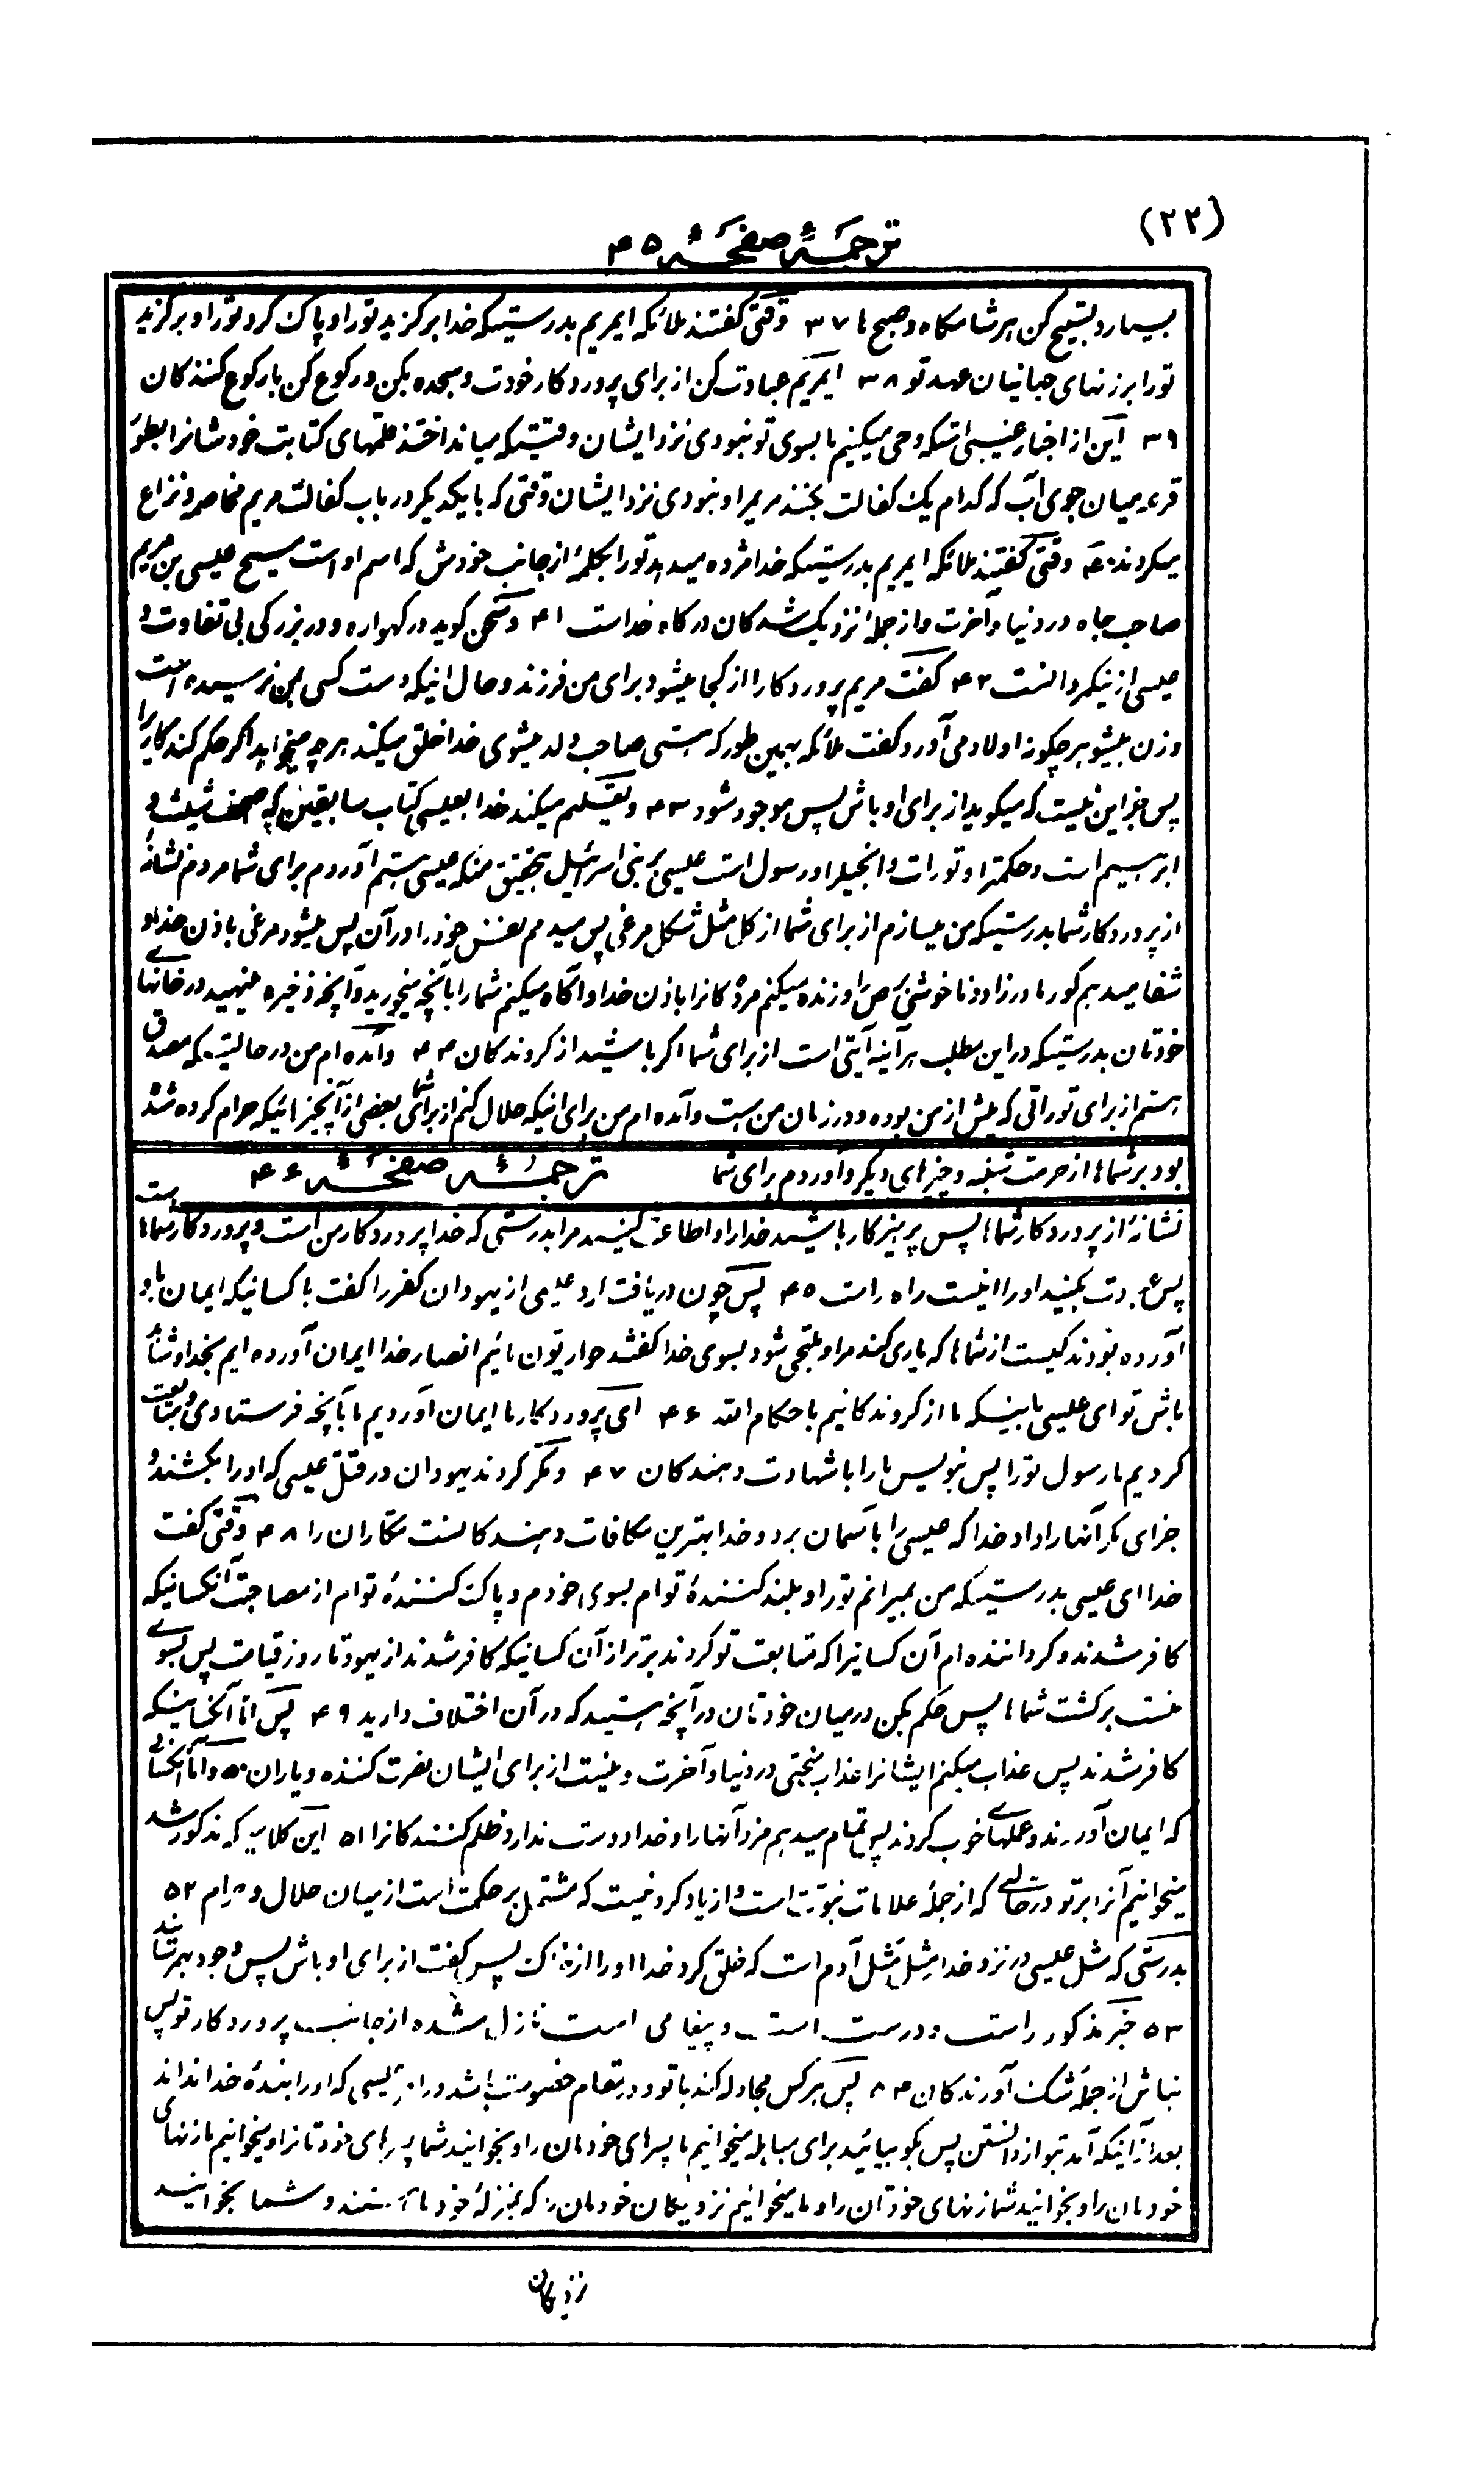 (۲۳)
ترجمهٔ صفحهٔ ۴۵
بسیار و تسبیح کن هر شامگاه و صبح ها ۳۷ وقتی گفتند ملائکه ایمریم بدرستیکه خدا برگزید تو را و پاک کرد تو را و برگزید
تو را بر زنهای جهانیان عهد تو ۳۸ ایمریم عبادت کن از برای پروردگار خودت و سجده بکن و رکوع کن با رکوع کنندگان
۳۹ این از اخبار غیبی استکه وحی میکنیم ما بسوی تو نبودی نزد ایشان وقتیکه میانداختند قلمهای کتابت خودشانرا بطور
قرعه میان جوی آب که کدام یک کفالت بکنند مریم را و نبودی نزد ایشان وقتی که با یکدیگر در باب کفالت مریم مخاصمه و نزاع
میکردند ۴۰ وقتی گفتند ملائکه ایمریم بدرستیکه خدا مژده میدهد تو را بکلمهٔ از جانب خودش که اسم او است مسیح عیسی بن مریم
صاحب جاه در دنیا و آخرت و از جملهٔ نزدیک شدگان درگاه خداست ۴۱ و سخن گوید در گهواره و در بزرگی بی تفاوت و
عیسی از نیکمردانست ۴۲ گفت مریم پروردگارا از کجا میشود برای من فرزند و حال انیکه دست کسی بمن نرسیده است
و زن بیشوهر چگونه اولاد می آورد گفت ملائکه بهمین طور که هستی صاحب ولد میشوی خدا خلق میکند هر چه میخواهد اگر حکم کند کاریرا
پس جز این نیست که میگوید از برای او باش پس موجود شود ۴۳ و تعلیم میکند خدا بعیسی کتاب سابقین که صحف شیث و
ابرهیم است و حکمترا و تورات و انجیلرا و رسول است عیسی بر بنی اسرائیل بتحقیق منکه عیسی هستم آوردم برای شما مردم نشانهٔ
از پروردگار شما بدرستیکه من میسازم از برای شما از گل مثل شکل مرغی پس میدمم نفس خود را در آن پس میشود مرغی باذن خدا و
شفا میدهم کور مادرزاد و ناخوشی برص را و زنده میکنم مردگانرا باذن خدا و آگاه میکنم شما را بآنچه میخورید و آنچه ذخیره مینهید در خانهای
خودتان بدرستیکه در این مطلب هر آینه آیتی است از برای شما اگر باشید از گروندگان ۴۴ و آمده ام من در حالتیکه مصدق
هستم از برای توراتی که پیش از من بوده و در زمان من هست و آمده ام من برای انیکه حلال کنم از برای شما بعضی از آنچیزهائیکه حرام کرده شده
بود بر شماها از حرمت شنبه و چیزهای دیگر و آوردم برای شما
ترجمهٔ صفحهٔ ۴۶
نشانهٔ از پروردگار شماها پس پرهیزکار باشید خدا را و اطاعت کنید مرا بدرستی که خدا پروردگار من است و پروردگار شماها است
پس عبادت بکنید او را اینست راه راست ۴۵ پس چون دریافت کرد عیسی از یهودان کفر را گفت با کسانیکه ایمان باو
آورده بودند کیست از شماها که یاری کند مرا و ملتجی شود بسوی خدا گفتند حواریون مائیم انصار خدا ایمان آورده ایم بخدا و شاهد
باش تو ای عیسی باینیکه ما از گروندگانیم باحکام الله ۴۶ ای پروردگار ما ایمان آوردیم ما بآنچه فرستادی و متابعت
کردیم ما رسول تو را پس بنویس ما را با شهادت دهندگان ۴۷ و مکر کردند یهودان در قتل عیسی که او را بکشند و
جزای مکر آنها را داد خدا که عیسی را بآسمان برد و خدا بهترین مکافات دهندگانست مکاران را ۴۸ وقتی گفت
خدا ای عیسی بدرستیکه من بمیرانم تو را و بلند کنندهٔ توام بسوی خودم و پاک کنندهٔ توام از مصاحبت آنکسانیکه
کافر شدند و گرداننده ام آن کسانیرا که متابعت تو کردند برتر از آن کسانیکه کافر شدند از یهود تا روز قیامت پس بسوی
منست برگشت شماها پس حکم بکن در میان خودتان در آنچه هستید که در آن اختلاف دارید ۴۹ پس اما آنکسانیکه
کافر شدند پس عذاب میکنم ایشانرا عذاب سختی در دنیا و آخرت و نیست از برای ایشان نصرت کننده و یاران ۵۰ و اما آنکسانی
که ایمان آوردند و عملهای خوب کردند پس تمام میدهم مزد آنها را و خدا دوست ندارد ظلم کنندگانرا ۵۱ این کلامیه که مذکور شد
میخوانیم آنرا بر تو در حالتی که از جملهٔ علامات نبوت است و از یاد کردنیست که مشتمل بر حکمت است از میان حلال و حرام ۵۲
بدرستی که مثل عیسی در نزد خدا مثل مثل آدم است که خلق کرد خدا او را از خاک پس گفت از برای او باش پس وجود بهمرساند
۵۳ خبر مذکور راست و درست است و پیغامی است نازل شده از جانب پروردگار تو پس
نباش از جمله شک آورندگان ۵۴ پس هر کس مجادله کند با تو و در مقام خصومت باشد در امر عیسی که او را بندهٔ خدا نداند
بعد از انیکه آمد بتو از دانستن پس بگو بیائید برای مباهله میخوانیم ما پسرهای خودمان را و بخوانید شما پسرهای خودتانرا و میخوانیم ما زنهای
خودمان را و بخوانید شما زنهای خودتان را و ما میخوانیم نزدیکان خودمان را که بمنزلهٔ خود ما هستند و شما بخوانید
نزدیکان